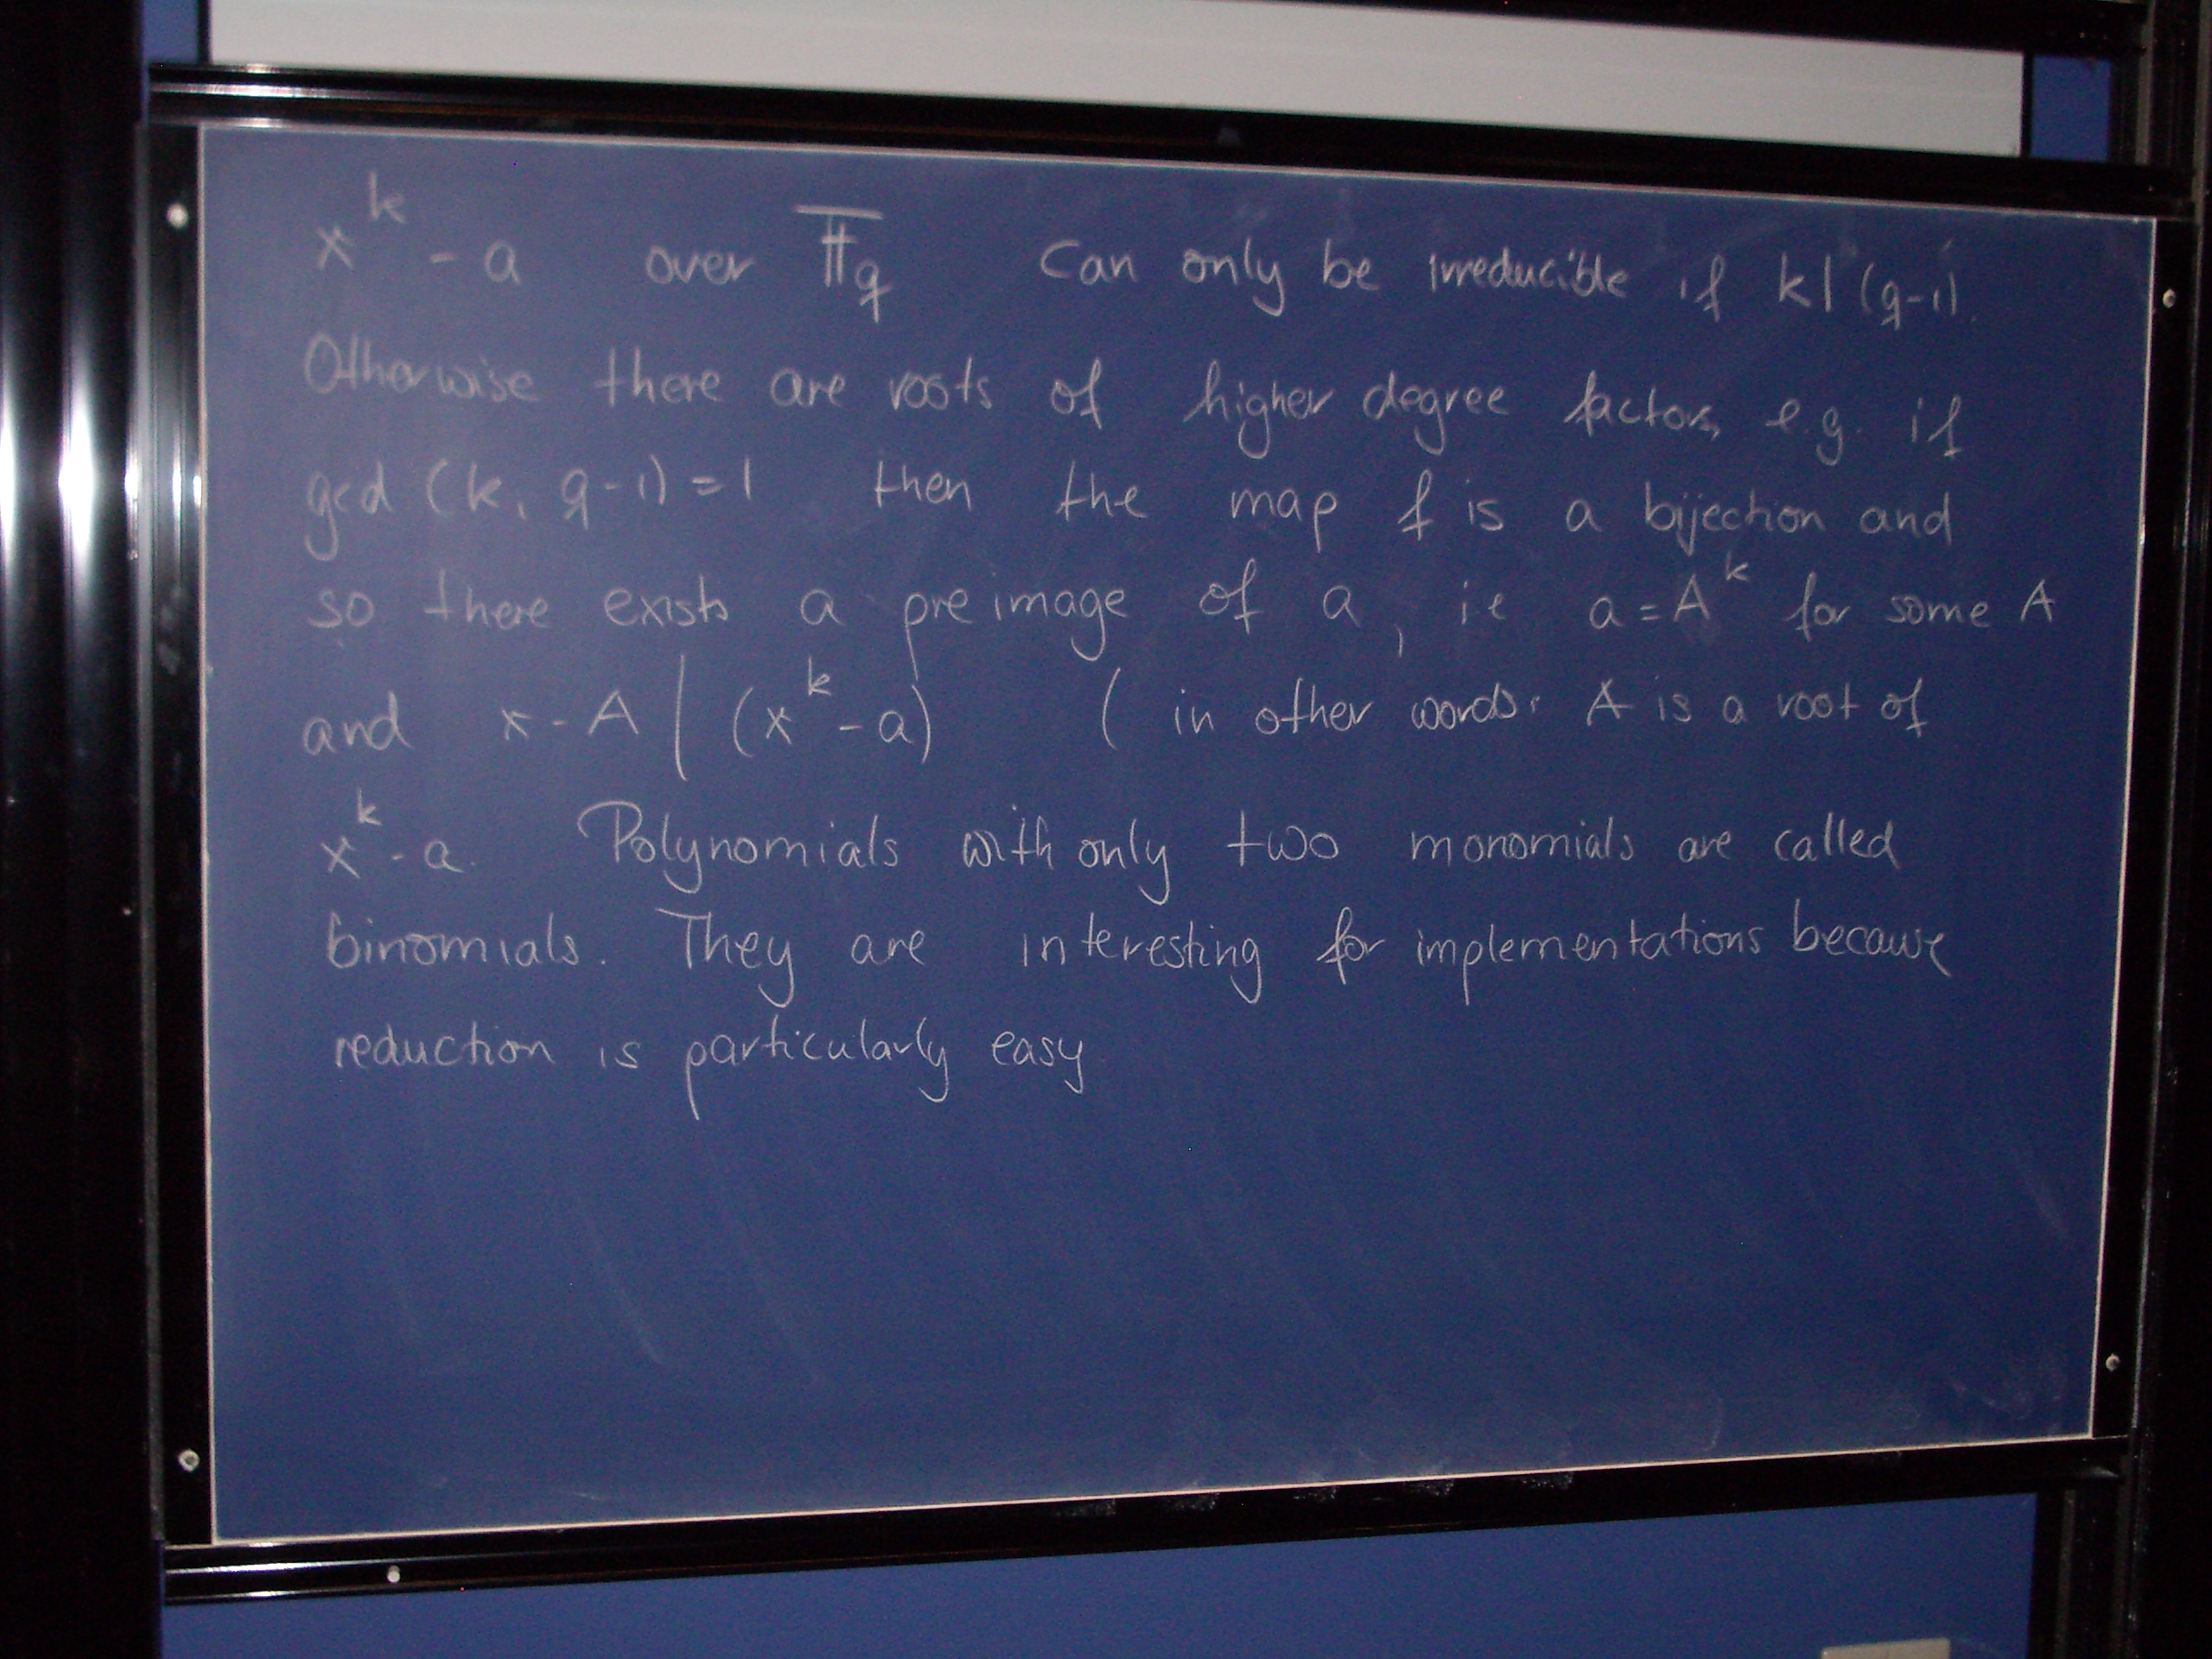 x^k - a over 𝔽_q can only be irreducible if k | (q-1).
Otherwise there are roots of higher degree factors, e.g. if
gcd (k, q-1) = 1 then the map f is a bijection and
so there exists a preimage of a, ie a = A^k for some A
and x - A | (x^k - a) ( in other words: A is a root of
x^k - a. Polynomials with only two monomials are called
binomials. They are interesting for implementations because
reduction is particularly easy